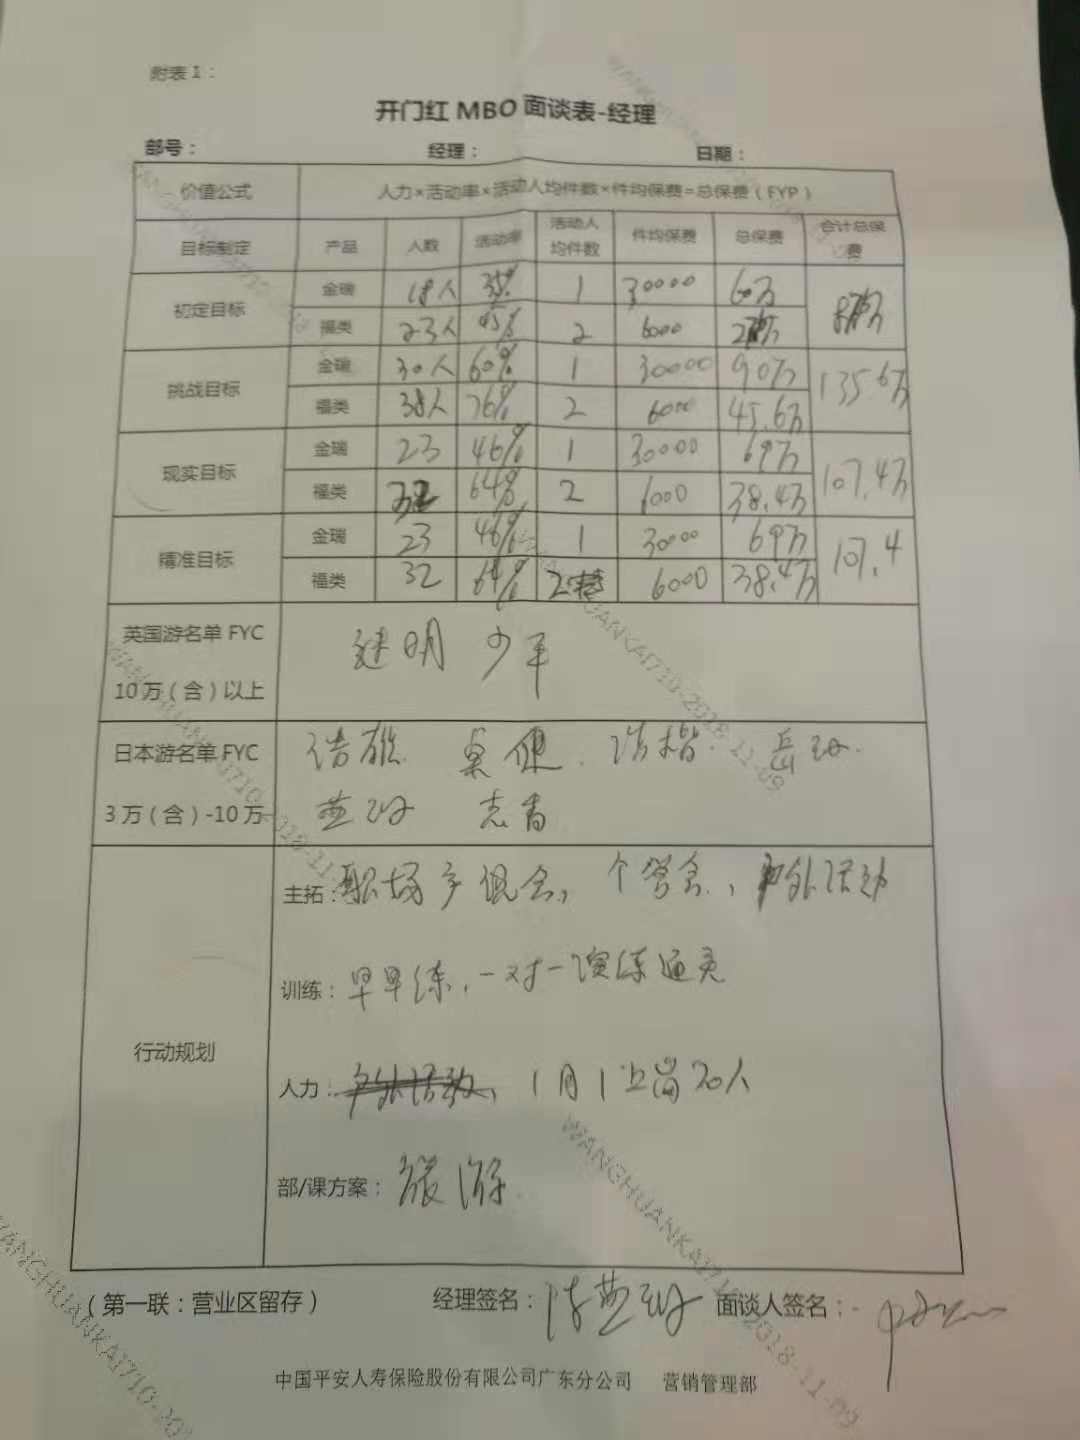 附表1：
开门红 MBO 面谈表-经理
部号： 经理： 日期：
价值公式 人力×活动率×活动人均件数×件均保费=总保费（FYP）
目标制定 产品 人数 活动率 活动人均件数 件均保费 总保费 合计总保费
初定目标 金瑞 18人 35% 1 30000 60万
福类 23人 45% 2 6000
挑战目标 金瑞 30人 60% 1 30000 90万 135.6万
福类 38人 76% 2 6000 45.6万
现实目标 金瑞 23 46% 1 30000 69万 107.4万
福类 32 64% 2 6000 38.4万
精准目标 金瑞 23 46% 1 30000 69万 107.4
福类 32 64% 2 6000 38.4万
英国游名单 FYC
10万（含）以上
明 少平
日本游名单 FYC
3万（含）-10万
浩雄 浩楷
燕 志青
行动规划
主拓：职场产说会，个 会，户外活动
训练：早早练，一对一演练通关
人力：户外活动，1月1上岗20人
部/课方案：旅游
（第一联：营业区留存） 经理签名：陈燕 面谈人签名：
中国平安人寿保险股份有限公司广东分公司 营销管理部
WANGHUANKAI710-2018-11-09